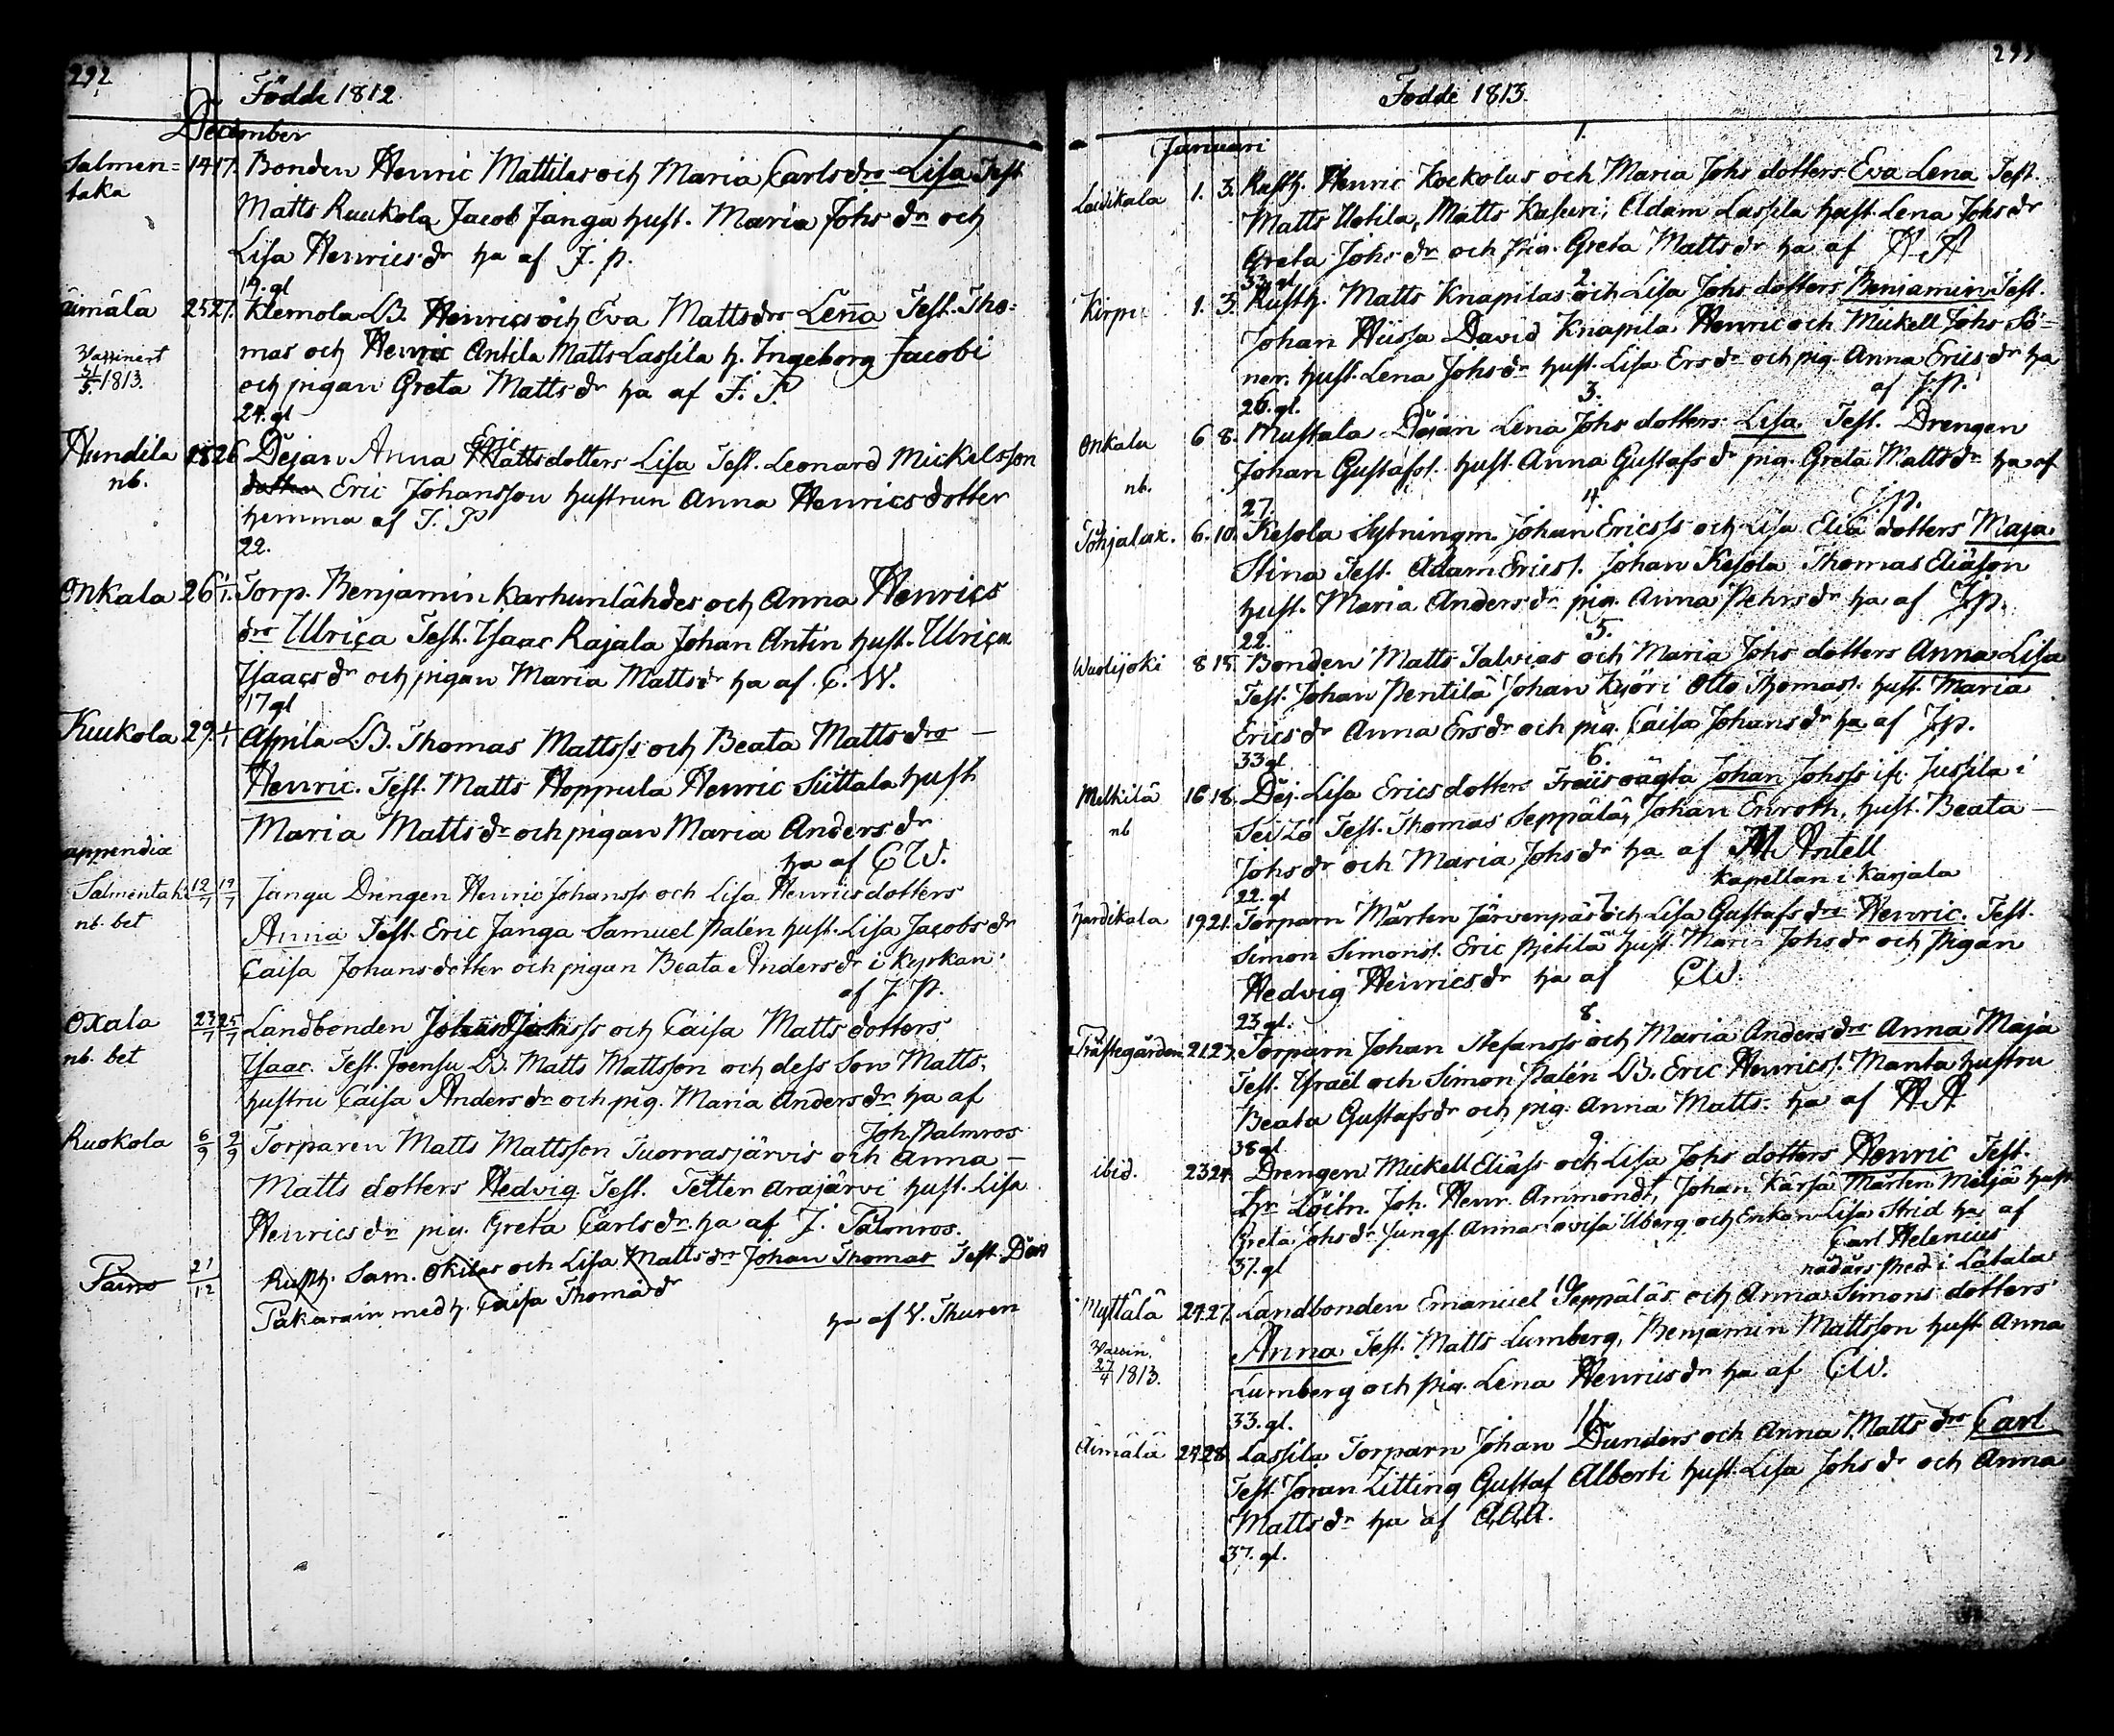 292
Födde 1812
December
Salmen= 14 17. Bonden Henric Mattilas och Maria Carls drs Lisa Test
taka Matts Ruukola Jacob Janga hust. Maria Johs dr och
Lisa Henrics dr ha af J. P.
19. gl
äimälä 25 27. Klemola LB. Henrics och Eva Matts drs Lena Test. Tho=
Vaccinert mas och Henric Antila Matts Lassila h. Ingeborg Jacobi
31/5. 1813. och pigan Greta Matts dr ha af J. P
24. gl
Hundila 25 26 Dejan Anna Eric Matts dotters Lisa Test. Leonard Mickelsson
nb. dotter Eric Johansson hustrun Anna Henrics dotter
hemma af J. P
22.
Onkala 26 1/1. Torp. Benjamin Karhunlähdes och Anna Henrics
drs Ulrica Test. Isaac Rajala Johan Antin hust. Ulrica
Isaacs dr och pigan Maria Matts dr ha af C. W.
17 gl
Kuukola 29. 1/1 Appila LB. Thomas Mattsss och Beata Matts drs —
Henric. Test. Matts Hoppula Henric Siittala hust
Maria Matts dr och pigan Maria Anders dr
ha af CW.
appendix
Salmentaka 12/7 19/7 Janga Drengen Henric Johansss och Lisa Henrics dotters
nb. bet Anna Test. Eric Janga Samuel Palén hust. Lisa Jacobs dr
Caisa Johans dotter och pigan Beata Anders dr i kyrkan
af J. P.
Oxala 23/7 25/7 Landbonden Johan Johsss och Caisa Matts dotters
nb. bet Isaac. Test. Joensu LB. Matts Mattsson och dess Son Matts,
hustru Caisa Anders dr och pig. Maria Anders dr ha af
Joh. Palmros
Ruokola 6/9 9/9 Torparen Matts Mattsson Tuorrasjärvis och Anna —
Matts dotters Hedvig Test. Petter Arajärvi hust. Lisa
Henrics dr pig. Greta Carls dr. ha af J. Palmros.
21/12 Rusth. Sam. Okilas och Lisa Matts drs Johan Thomas Test. Dan
Pakarain med h. Caisa Thomä dr
ha af V. Thuren
Födde 1813.
Januari
1.
Laurikala 1. 3. Rusth. Henric Kockolas och Maria Johs dotters Eva Lena Test.
Matts Uotila, Matts Kasuri, Adam Lassila hust. Lena Johs dr
Greta Johs dr och pig. Greta Matts dr ha af A A
33. gl 2
Kirpu 1. 3. Rusth. Matts Knapilas och Lisa Johs dotters Benjamin Test.
Johan Hiissa David Knapila Henric och Mickell Johs Sö=
ner. hust. Lena Johs dr hust. Lisa Ers dr och pig. Anna Erics dr ha
af J. P.
26. gl. 3.
Onkala 6 8. Mustala Dejan Lena Johs dotters Lisa. Test. Drengen
nb. Johan Gustafss. hust. Anna Gustafs dr pig. Greta Matts dr ha af
J. P.
27. 4.
Pohjalax. 6. 10. Kesola Sytningm. Johan Ericsss och Lisa Eliä dotters Maja
Stina Test. Adam Erics. Johan Kesola Thomas Eliäson
hust. Maria Anders dr pig. Anna Pehrs dr ha af J. P.
22. 5.
Wuolijoki 8 15. Bonden Matts Salvias och Maria Johs dotters Anna Lisa
Test. Johan Pentilä Johan Kyöri Otto Thomas. hust. Maria
Erics dr Anna Ers dr och pig. Caisa Johans dr ha af J. P.
33 gl 6.
Melkilä 16 18. Dej. Lisa Erics dotters Johan Johsss Jussila i
nb Test. Thomas Seppälä, Johan Enroth, hust. Beata —
Johs dr och Maria Johs dr ha af M. Antell
Kapellan i Karjala
22. gl 7
Hardikala 19 21. Torparn Mårten Järvenpäs och Lisa Gustafs drs Henric. Test.
Simon Simons. Eric Pietilä hust. Maria Johs dr och Pigan
Hedvig Henrics dr ha af CW.
23 gl. 8.
Prästegården 21. 23. Torparn Johan Stefansss och Maria Anders drs Anna Maja
Test. Israël och Simon Palén LB. Eric Henrics. Manta hustru
Beata Gustafs dr och pig. Anna Matts. ha af A. A
38 gl 9
ibid. 23 24. Drengen Mickell Eliäss och Lisa Johs dotters Henric Test.
Hr Löitn. Joh. Henr. Ammondt, Johan Kärsä Mårten Miljä hust
Greta Johs dr Jungf. Anna Lovisa Uberg och Enkan Lisa Strid ha af
Carl Helenius
nådårs Pred. i Lätala
37. gl 10
Myllälä 24 27. Landbonden Emanuel Seppäläs och Anna Simons dotters
Vaccin. Anna. Test. Matts Lumberg, Benjamin Mattsson hust Anna
27/4 1813. Lumberg och pig. Lena Henrics dr ha af CW.
33. gl. 11
Äimälä 24 28. Lassila Torparn Johan Dunders och Anna Matts drs Carl
Test. Joran Litting Gustaf Alberti hust. Lisa Johs dr och Anna
Matts dr ha af A.A.A.
37. gl.